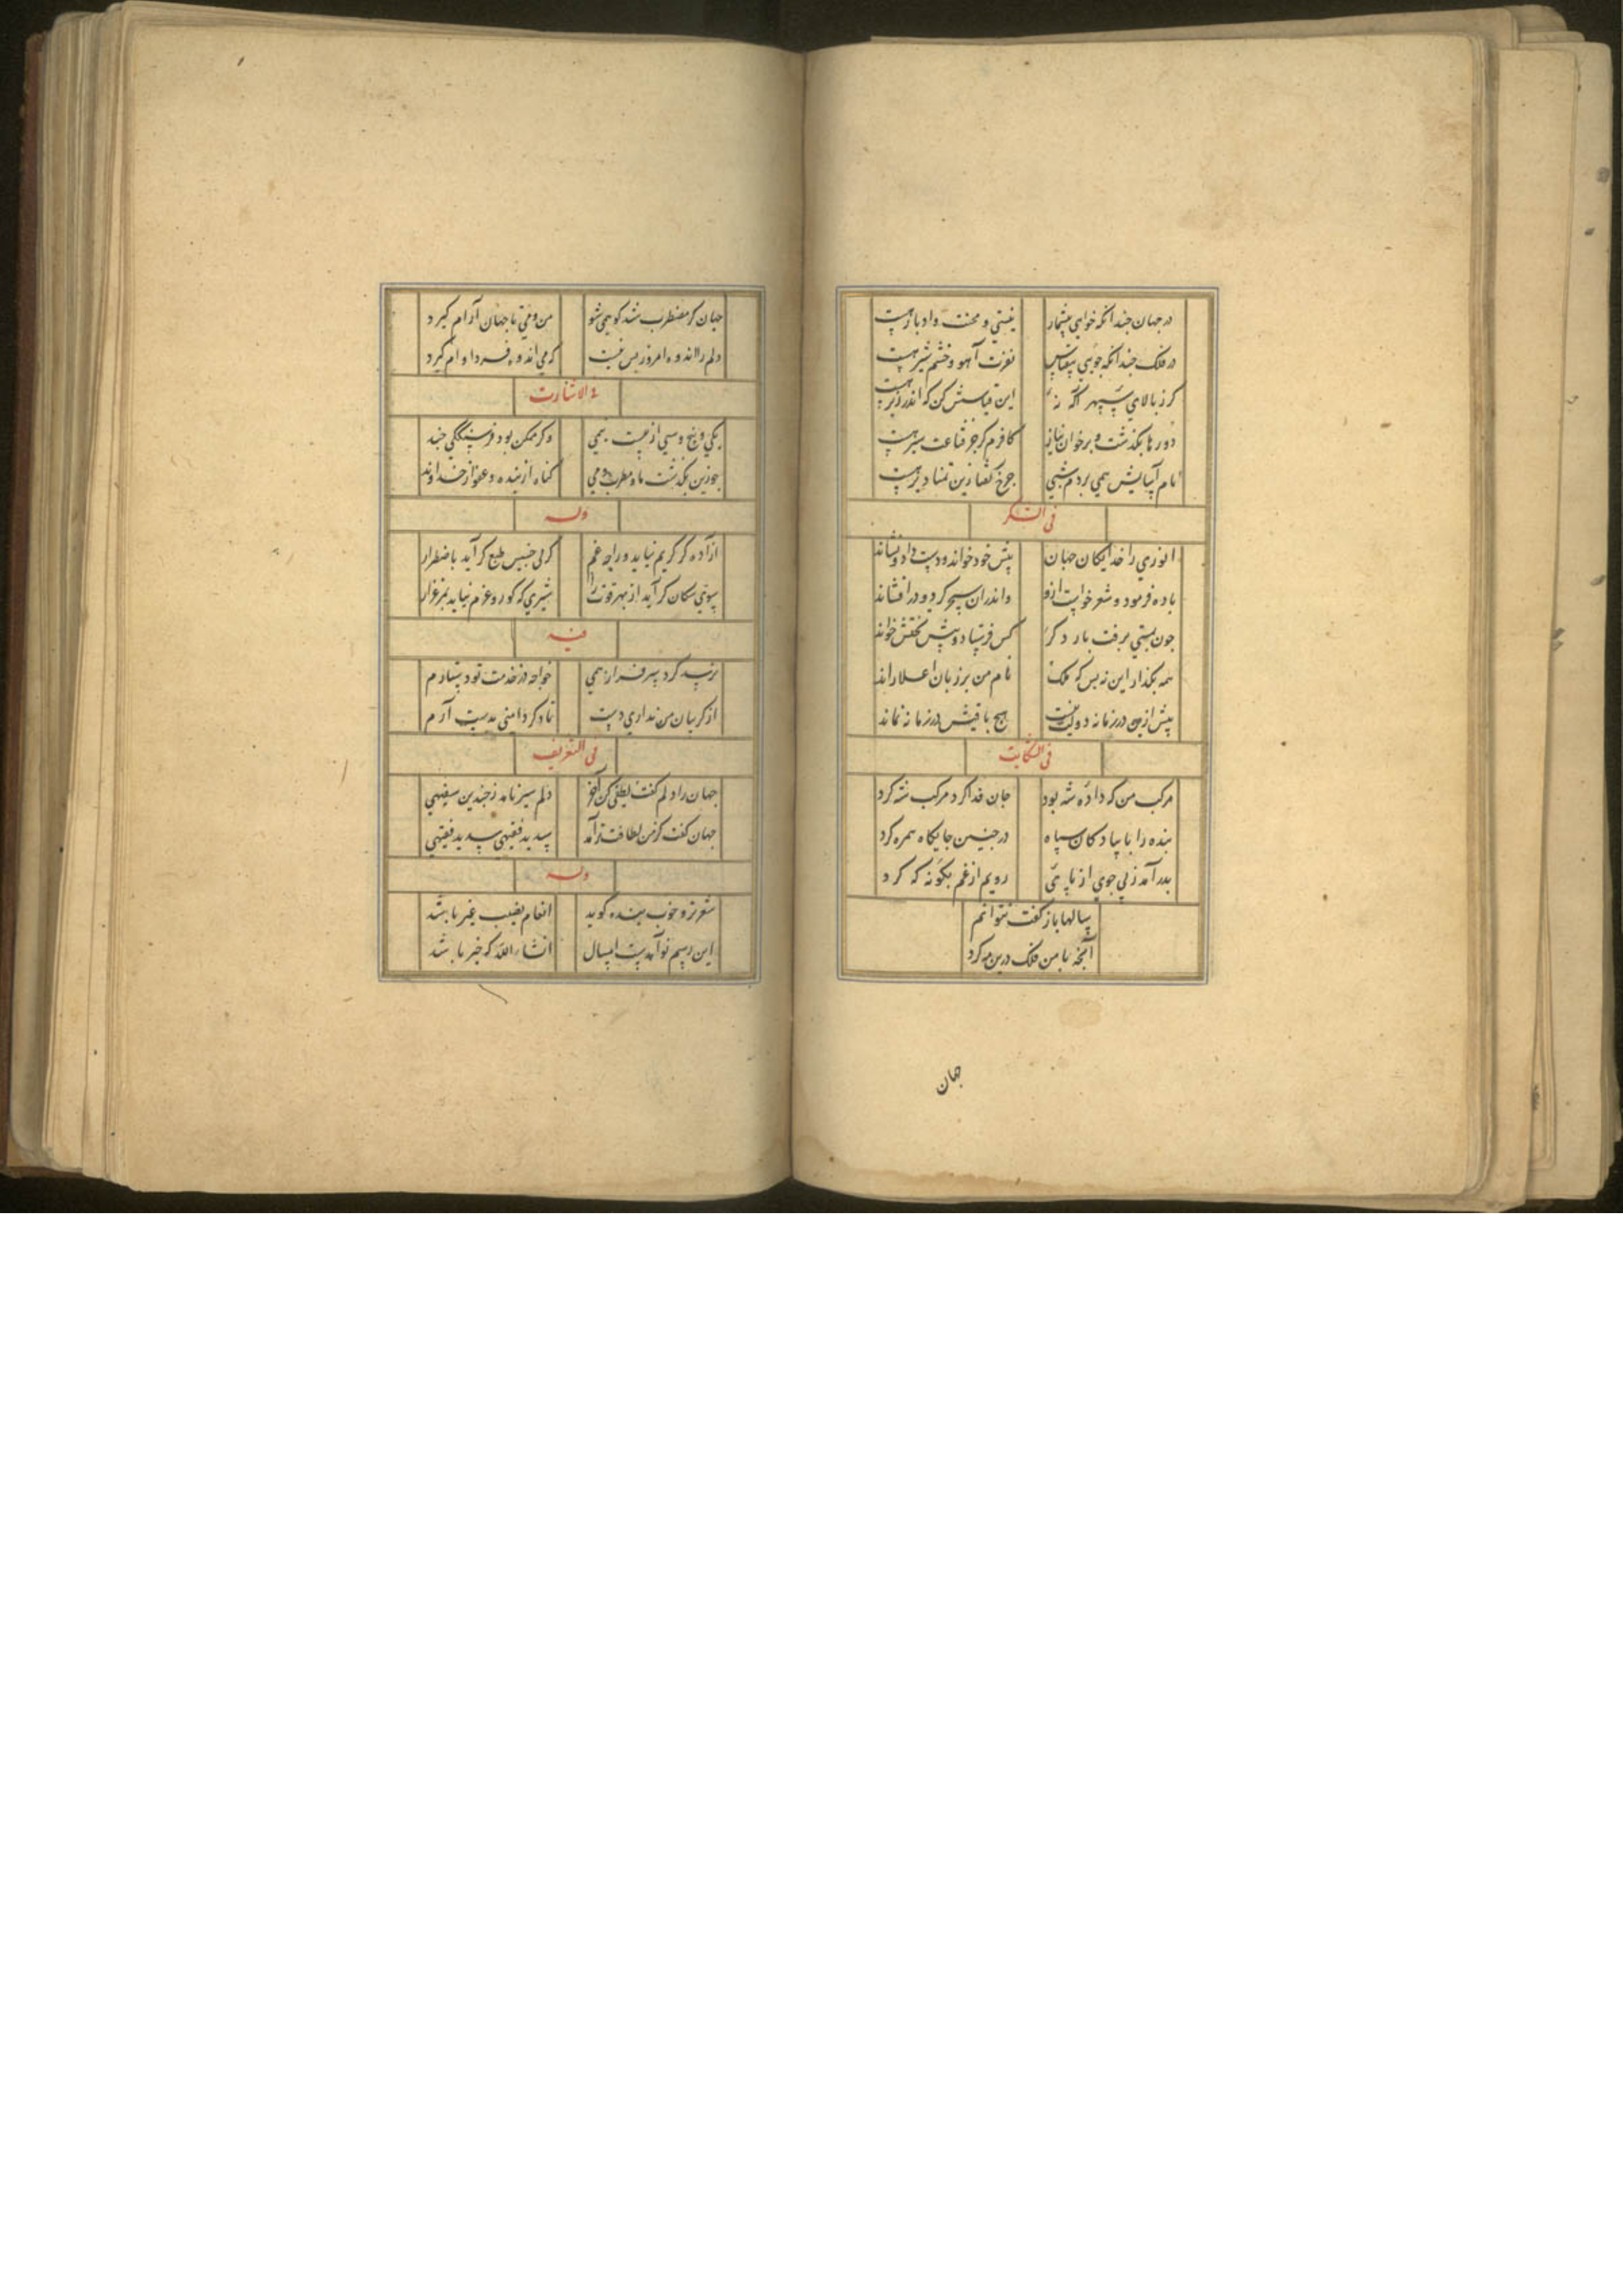 در جهان چندانکه خواهی بیشمار نیستی و محنت و ادبار هست
در فلک چندانکه جویی بیقیاس نفرت آهو و خشم شیر هست
کر ز بالای سپهر آکه نه این قیاسش کن که اندر زیر هست
دورها بکذشت و بر خوان نیاز کافرم کر جز قناعت سیر هست
نام آسایش همی بردم شبی چرخ کفتا زین تمنا دیر هست
فی الشکر
انوری را خدایکان جهان پیش خود خواند و دست داد و نشاند
باده فرمود و شعر خواست ازو واندران سحر کرد و در افشاند
چون بمستی برفت بار دکر کس فرستاد و پیش تختش خواند
همه بکذار این نه بس که ملک نام من بر زبان اعلا راند
پیش ازین در زمانه دولت نیست هیچ باقیش در زمانه نماند
فی الشکایت
مرکب من که داده شه بود جان فدا کرد مرکب شه کرد
بنده را با پیادکان سپاه در چنین جایکاه همره کرد
بدر آمد ز بی جوی از پای رویم از غم بکونه که کرد
سالها باز کفت نتوانم
آنچه با من فلک درین مه کرد
جهان
جهان کر مضطرب شد کو همی شو من و می تا جهان آرام کیرد
دلم را انده امروز بس نیست که می اندوه فردا وام کیرد
فی الاشارت
یکی و پنج و سی از بیست نیمی وکر ممکن بود فرسنککی چند
چو زین بکذشت ما و مطرب و می کناه از بنده و عفو از خداوند
وله
آزاده کر کریم نیاید ورا چه غم کر بی خسیس طبع کر آید باضطرار
سوی سکان کر آید از بهر قوت را شیری که کور و غرم نیابد بمرغزار
فیه
نرسد کرد سرفرازی خواجه در خدمت تو دستارم
از کریبان من نداری دست تا دکر دامنی بدست آرم
فی التعریف
جهان را دلم کفت لطفی کن آخر دلم سیر نامد ز چندین سفیهی
جهان کفت کز من لطافت نیامد سدید فقیهی سدید فقیهی
وله
شعر تر و خوب بنده کوید انعام نصیب غیر باشد
این رسم نو آمدست امسال انشاء الله که خیر باشد